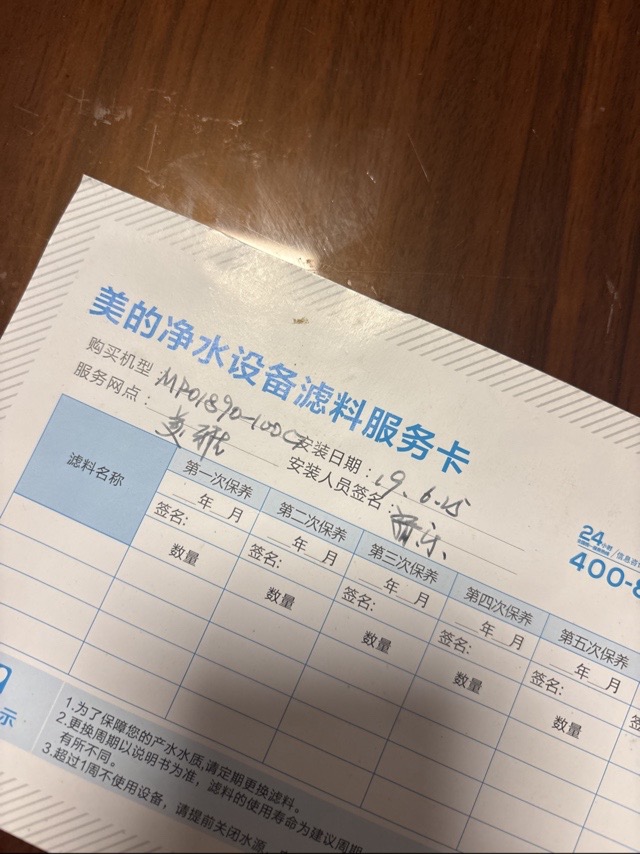 美的净水设备滤料服务卡
购买机型：MP01890-100G 安装日期：19.6.25
服务网点： 安装人员签名：
24小时
400-8
滤料名称 第一次保养 第二次保养 第三次保养 第四次保养 第五次保养
年 月 年 月 年 月 年 月 年 月
签名: 签名: 签名: 签名: 签名: 签
数量 数量 数量 数量 数量
示
1.为了保障您的产水水质,请定期更换滤料。
2.更换周期以说明书为准，滤料的使用寿命为建议周期
有所不同。
3.超过1周不使用设备，请提前关闭水源